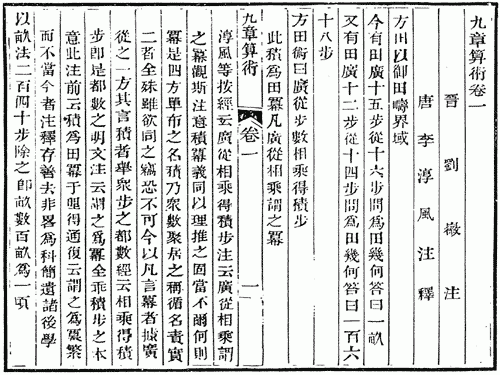 九章算術卷一
晉劉徽注
唐李淳風注釋
方田以御田疇界域
今有田廣十五步從十六步問爲田幾何答曰一畝
又有田廣十二步從十四步問爲田幾何答曰一百六
十八步
方田術曰廣從步數相乘得積步
此積爲田冪凡廣從相乘謂之冪
九章算術 卷一 一
淳風等按經云廣從相乘得積步注云廣從相乘謂
之冪觀斯注意積冪義同以理推之固當不爾何則
冪是四方單布之名積乃衆數聚居之稱循名責實
二者全殊雖欲同之竊恐不可今以凡言冪者據廣
從之一方其言積者舉衆步之都數經云相乘得積
步卽是都數之明文注云謂之爲冪全乖積步之本
意此注前云積爲田冪于理得通復云謂之爲冪繁
而不當今者注釋存善去非畧爲科簡遺諸後學
以畝法二百四十步除之卽畝數百畝爲一頃